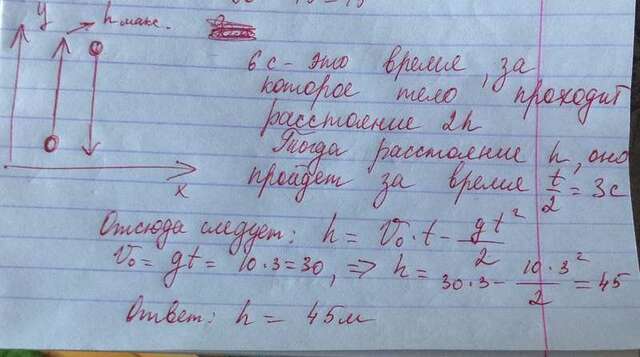 y
h макс.
x
6 с - это время, за
которое тело проходит
расстояние 2h
Тогда расстояние h, оно
пройдет за время t/2 = 3с
Отсюда следует: h = V₀·t - gt²/2
V₀ = gt = 10·3=30, => h = 30·3 - 10·3²/2 = 45
Ответ: h = 45м